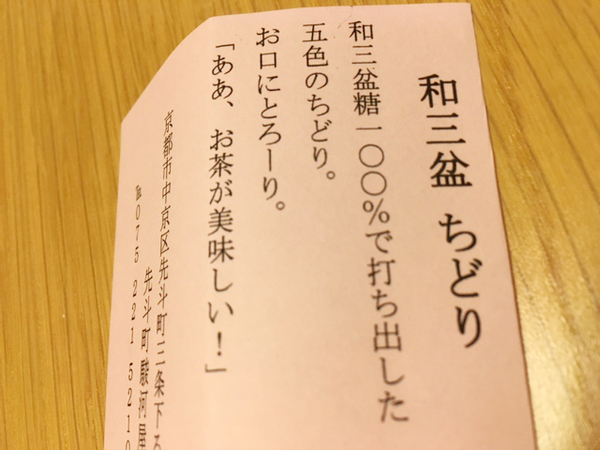 和三盆 ちどり
和三盆糖一〇〇%で打ち出した
五色のちどり。
お口にとろーり。
「ああ、お茶が美味しい!」
京都市中京区先斗町三条下る
先斗町駿河屋
℡075 221 5210